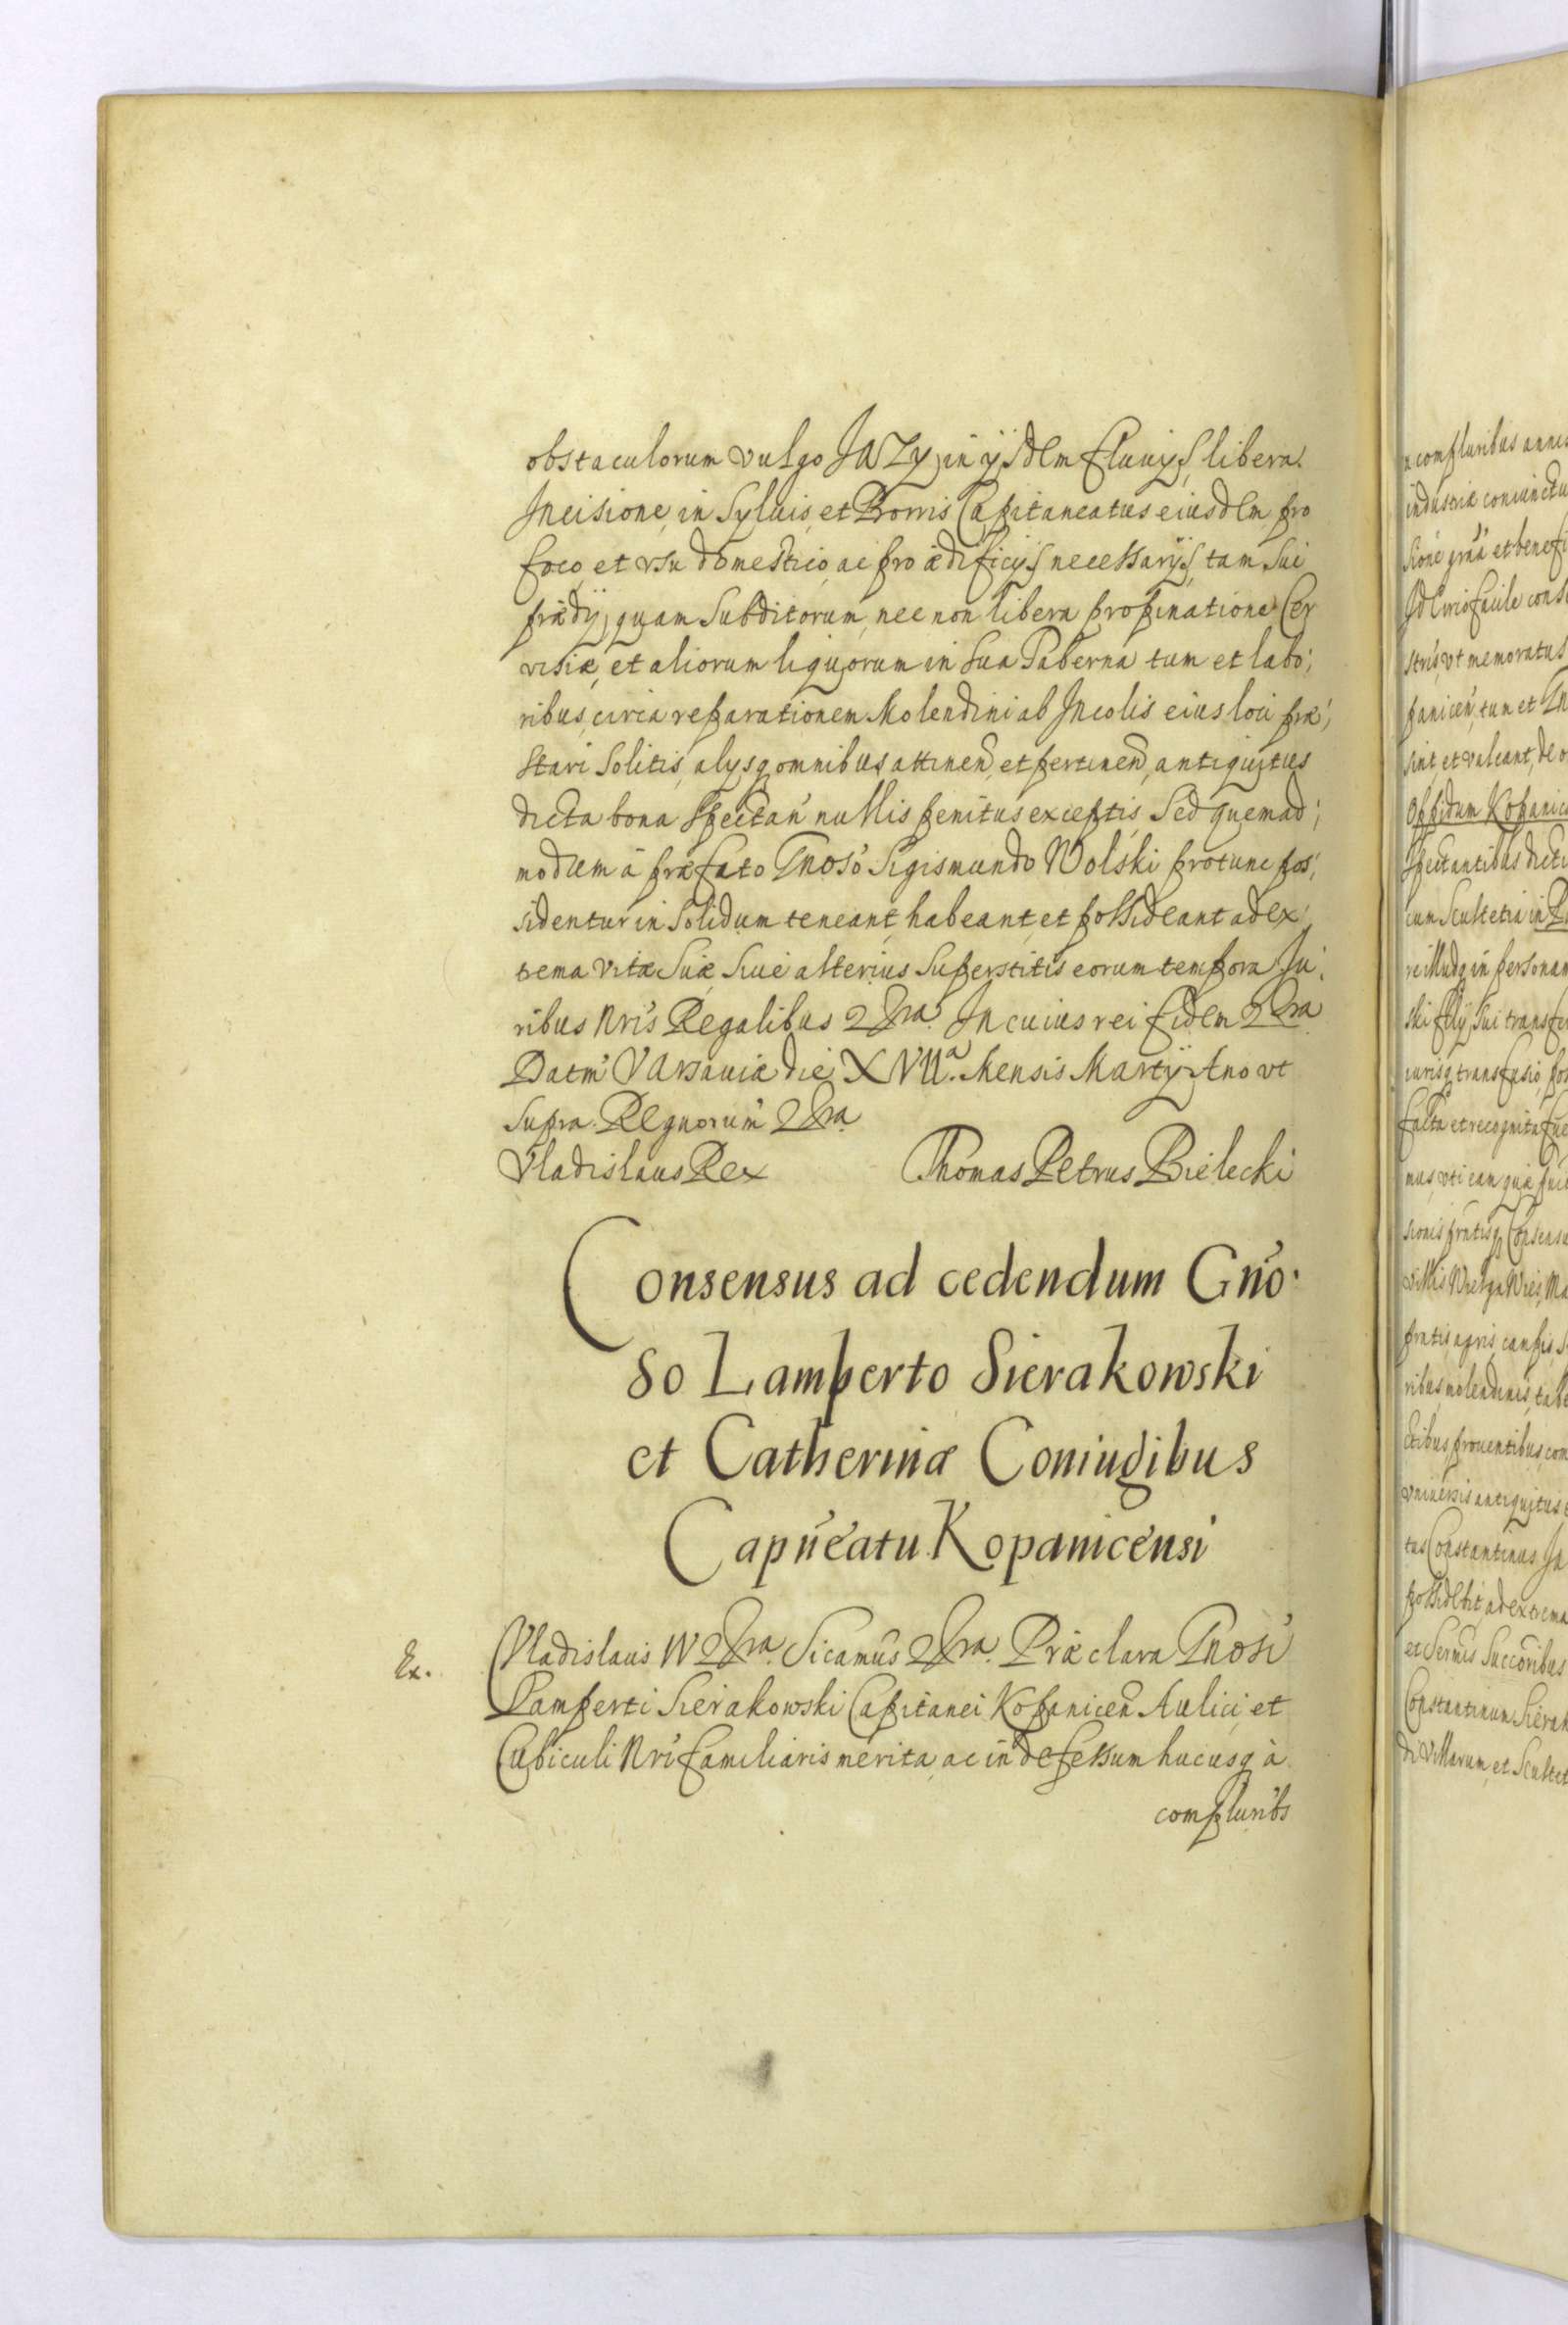 obstaculorum vulgo JAZy, in ijsdem fluvijs, libera
Incisione, in Syluis, et Borris Capitaneatus eiusdem pro
foco, et vsu domestico, ac pro ædificijs necessarijs, tam sui
prædij, quam Subditorum, nec non libera propinatione Cer
visiæ, et aliorum liquorum in sua Taberna tum et labo;
ribus, circa reparationem Molendini ab Incolis eius loci præ;
stari solitis, alijsq omnibus attinen, et pertinen, antiquitus
dicta bona Spectan nullis penitus exceptis, Sed quemad;
modum à præfato Gnoso Sigismundo Wolski protunc pos;
sidentur in solidum teneant, habeant, et possideant ad ex;
trema vitæ Suæ, siue alterius Superstitis eorum tempora Ju;
ribus Nris Regalibus &ra. In cuius rei fidem &ra
Datm Varsauiæ die XVIIa. Mensis Martij Ano vt
supra. Regnorum &ra
Vladislaus Rex Thomas Petrus Bielecki
Consensus ad cedendum Gno·
so Lamperto Sierakowski
et Catherinæ Coniugibus
Capneatu Kopanicensi
Ex.
Vladislaus IV &ra. Sicamus &ra. Præclara Gnosi
Lamperti Sierakowski Capitanei Kopanicen Aulici, et
Cubiculi Nri familiaris merita, ac indefessum hucusq à
compluribs
a compluribus annis
industriæ coniunctu
sione græ et benefi
Idcirco facile cons
stris, vt memoratus
panicen, tum et
sint, et valeant, de
Oppidum Kopanica
Spectantibus dicti
cum Scultetia in
ski filij sui transfe
iurisq transfusio
facta et recognita fue
sionis pratisq Consensu
villis Wielga Wies, Ma
pratis, agris, campis, S
ribus, molendinis, tab
ctibus prouentibus, com
vniuersis antiquitus
tus Constantinus
possidebit ad extrema
et Sermis Succoribus
Constantinum Sierak
di Villarum, et Scultet